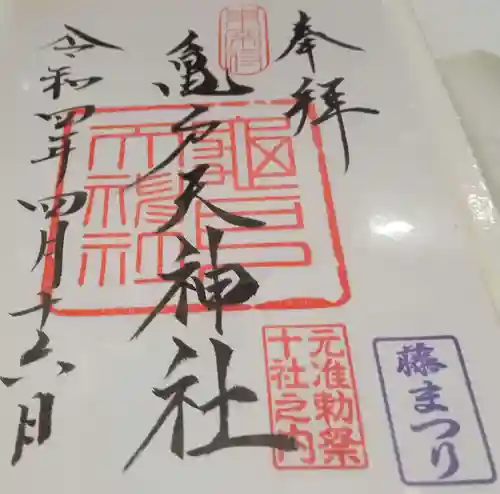 奉拝
東宰府
亀戸天神社
亀戸天神社
元准勅祭
十社之内
藤まつり
令和四年四月十六日